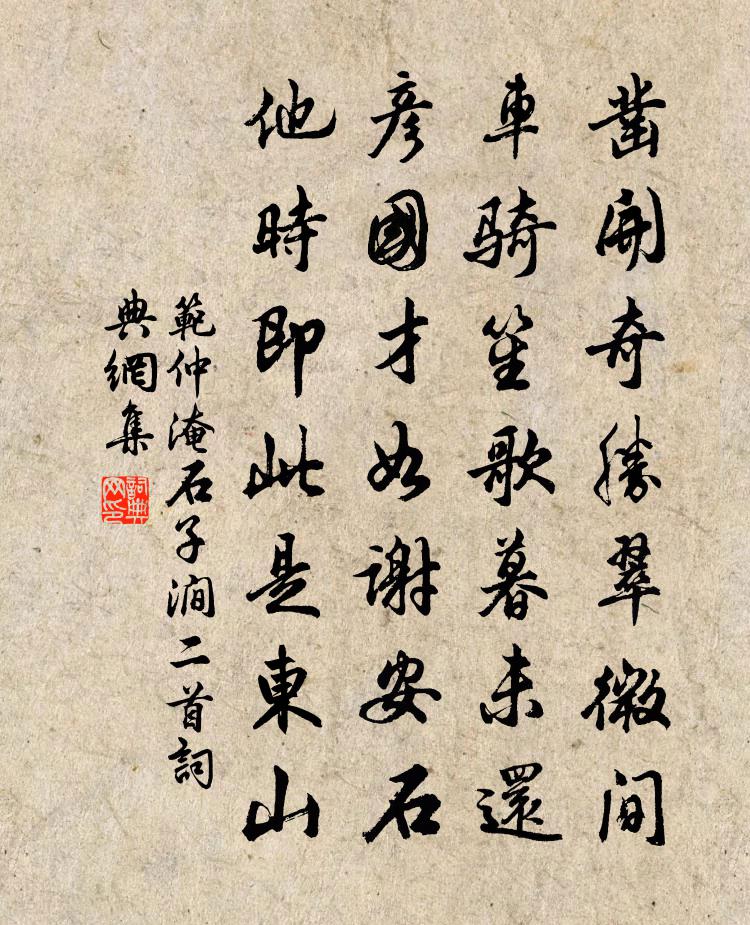 鑿開奇勝翠微間
車騎笙歌暮未還
彥國才如謝安石
他時即此是東山
範仲淹石子澗二首詞
典網集
詞典
网印